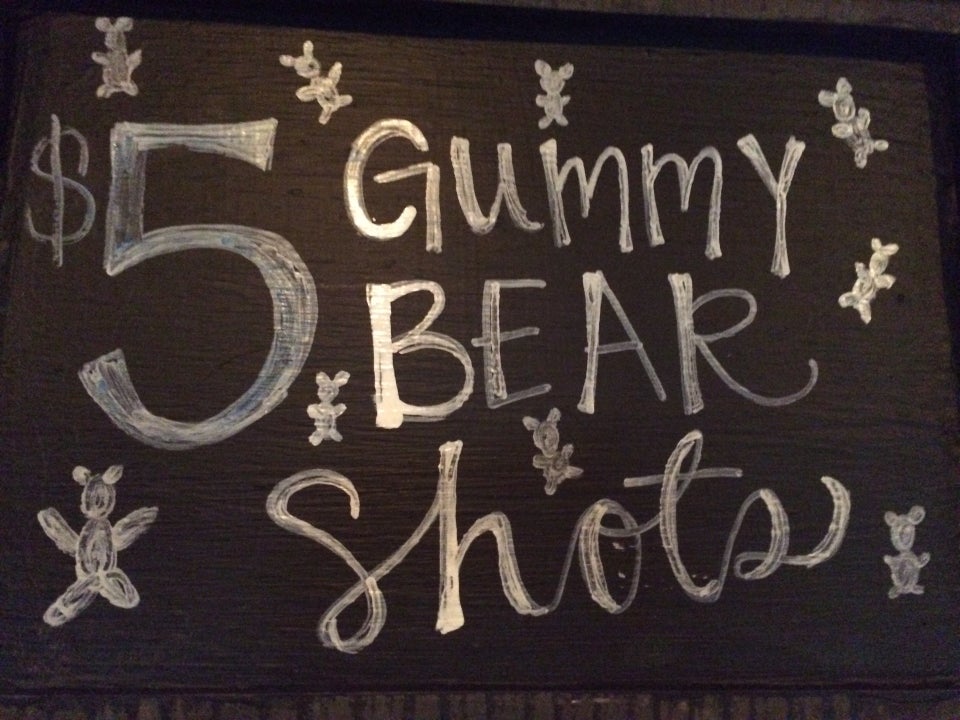 $5 Gummy
BEAR
Shots